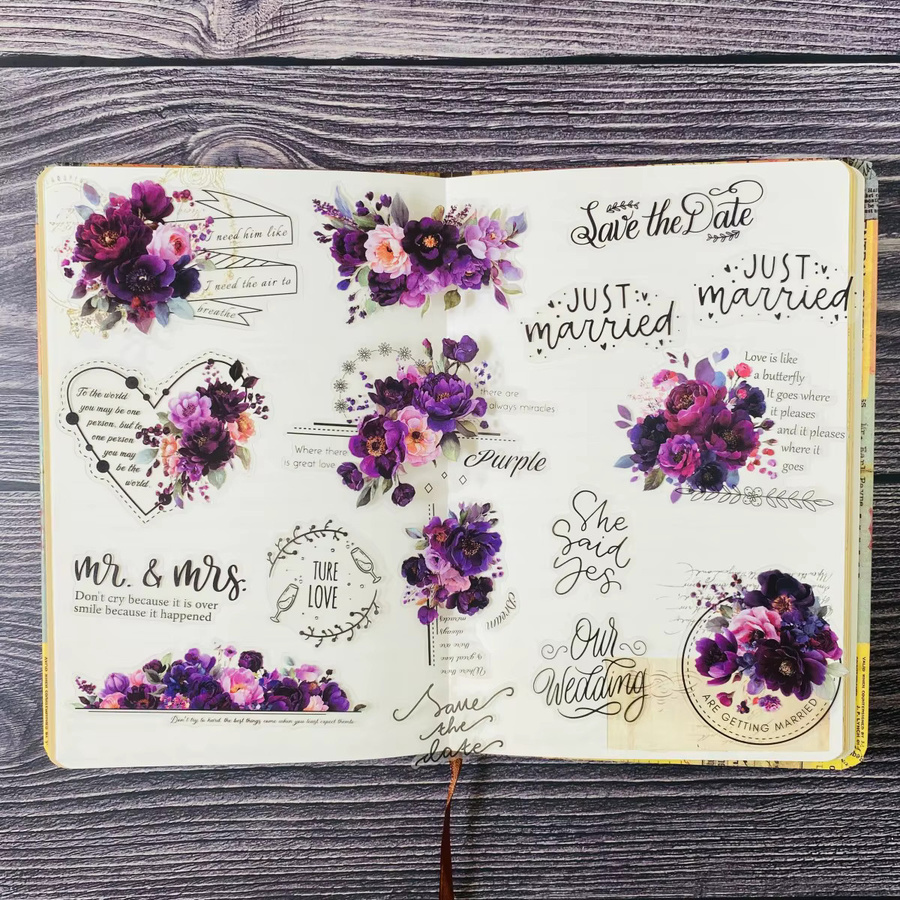 I need him like
I need the air to
breathe
Save the Date
JUST
married
JUST
married
To the world
you may be one
person, but to
one person
you may
be the
world.
there are
always miracles
Where there
is great love
Purple
Love is like
a butterfly
It goes where
it pleases
and it pleases
where it
goes
She
Said
yes
mr. & mrs.
Don't cry because it is over
smile because it happened
TURE
LOVE
Dream
Where there
is great love
there are
always
miracles
Our
Wedding
ARE GETTING MARRIED
Don't try to hard, the best things come when you least expect them to
Save
the
date